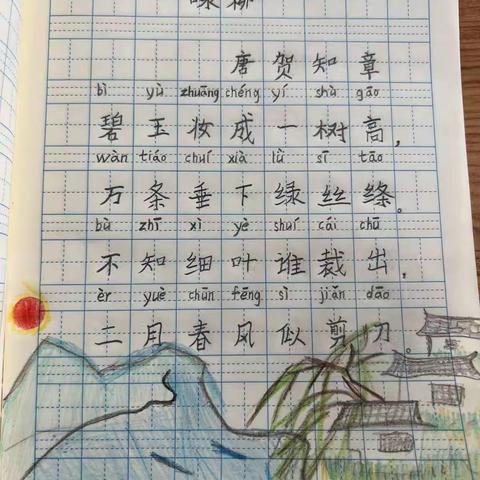 唐 贺知章
bì yù zhuāng chéng yí shù gāo
碧玉妆成一树高,
wàn tiáo chuí xià lǜ sī tāo
万条垂下绿丝绦。
bù zhī xì yè shuí cái chū
不知细叶谁裁出,
èr yuè chūn fēng sì jiǎn dāo
二月春风似剪刀。